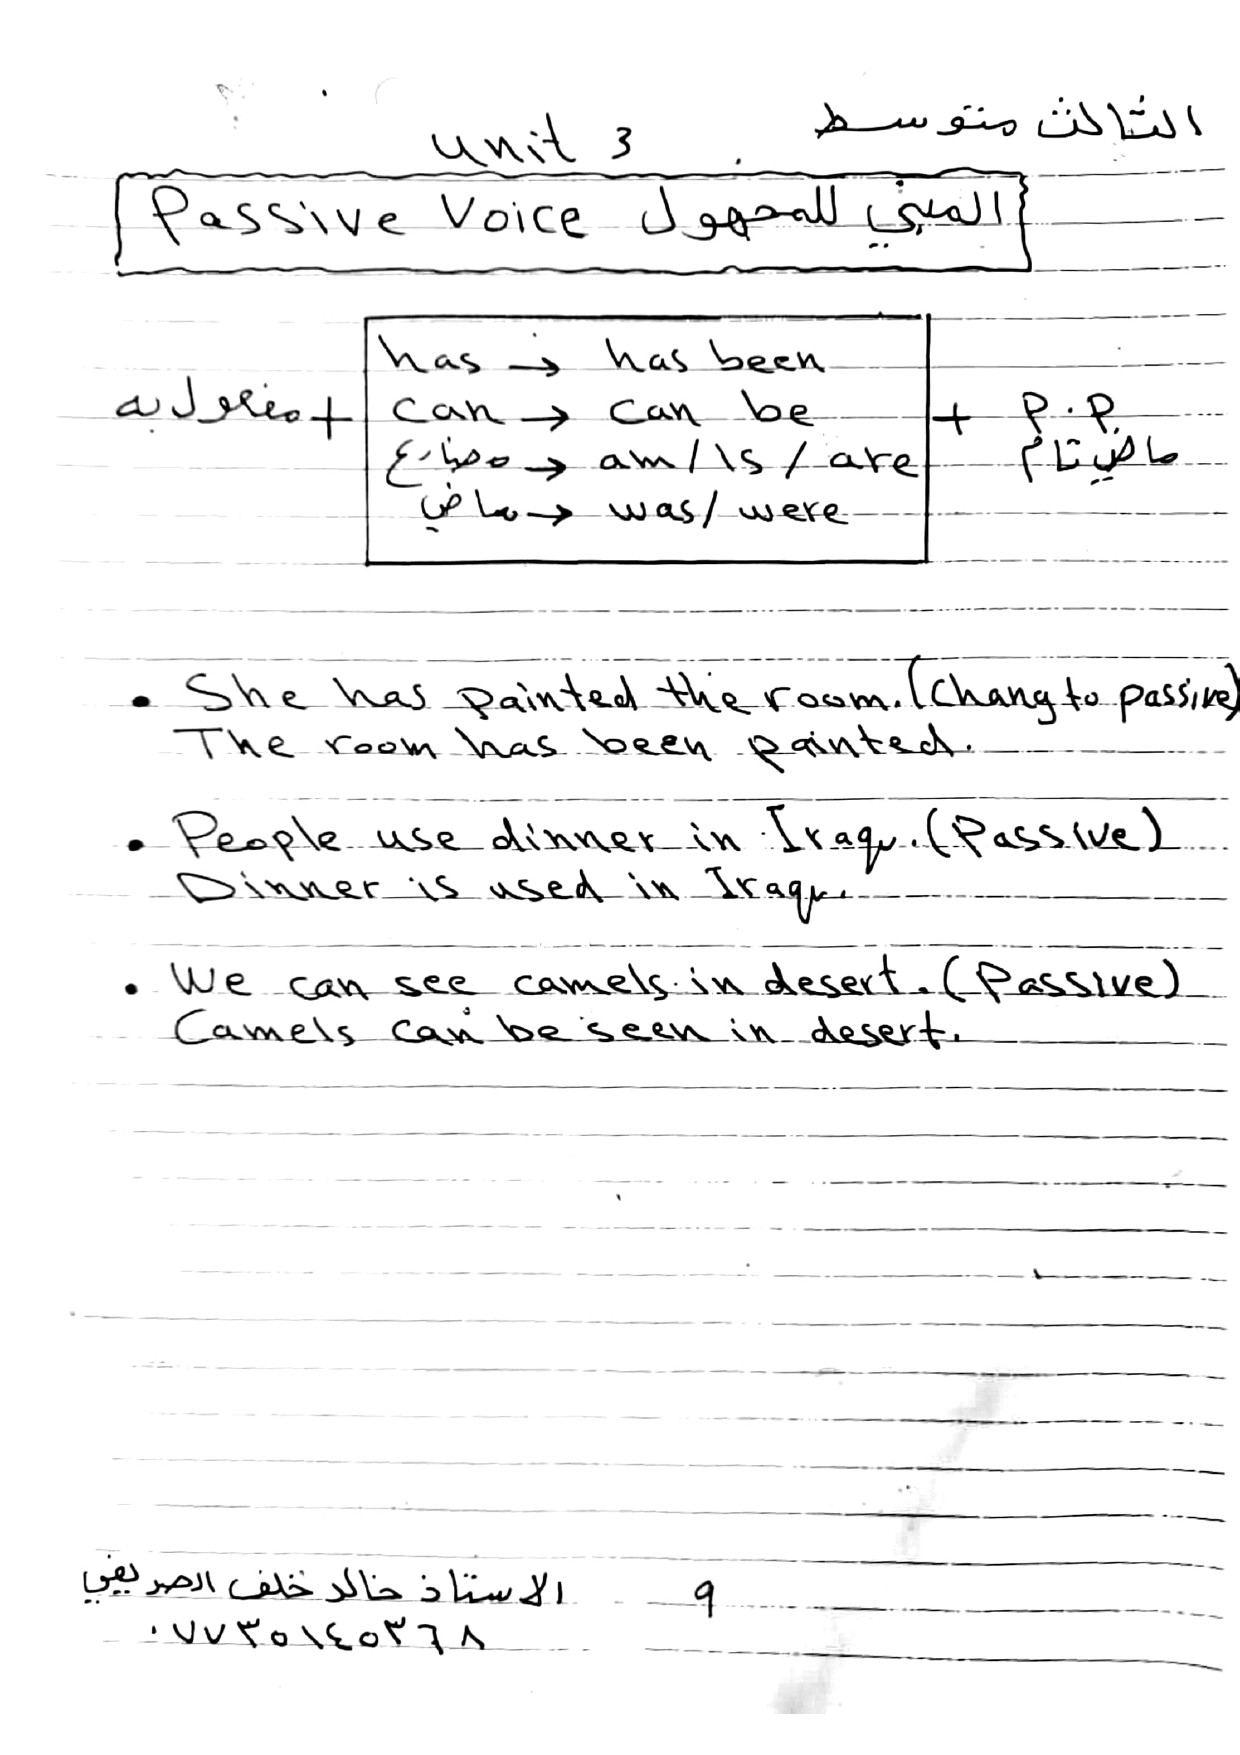 الثالث متوسط
unit 3
Passive Voice المبني للمجهول
has → has been
مفعول به + can → can be + P.P.
مضارع → am/is/are ماضي تام
ماضي → was/were
• She has painted the room. (Chang to passive)
The room has been painted.
• People use dinner in Iraq. (Passive)
Dinner is used in Iraq.
• We can see camels in desert. (Passive)
Camels can be seen in desert.
الاستاذ خالد خلف الصريفي ٩
٠٧٧٣٥١٤٥٣٦٨